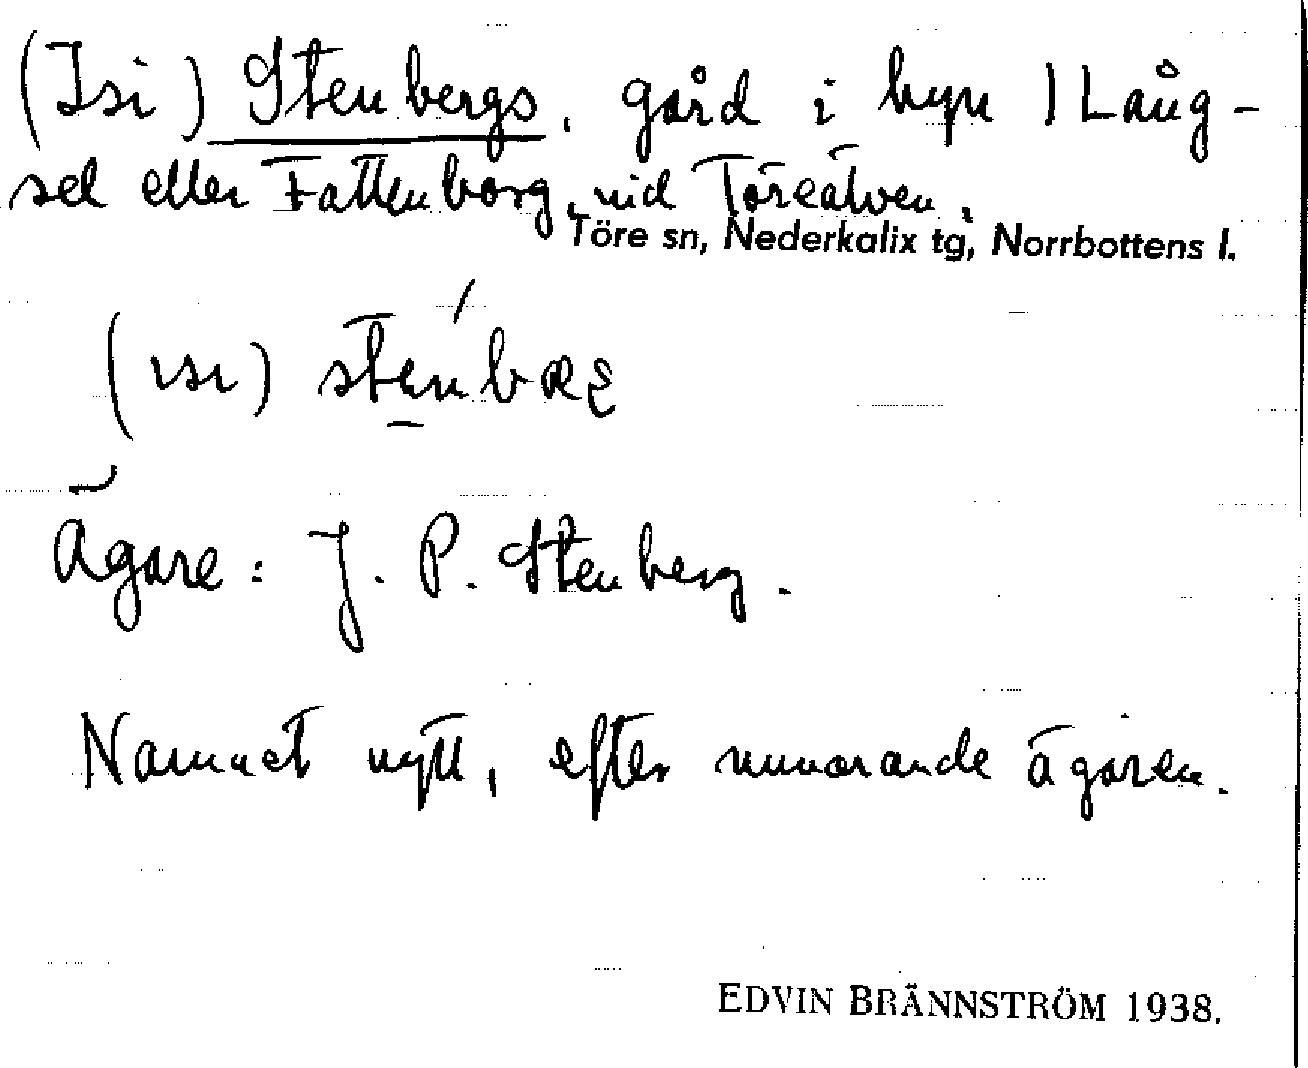 (Isi) Stenbergs, gård i byn 1 Lång-
sel eller Fattenborg, vid Töreälven.
Töre sn, Nederkalix tg, Norrbottens l.
(ısı) stenbæ
Ägare: J. P. Stenberg.
Namnet nytt, efter nuvarande ägaren.
EDVIN BRÄNNSTRÖM 1938.